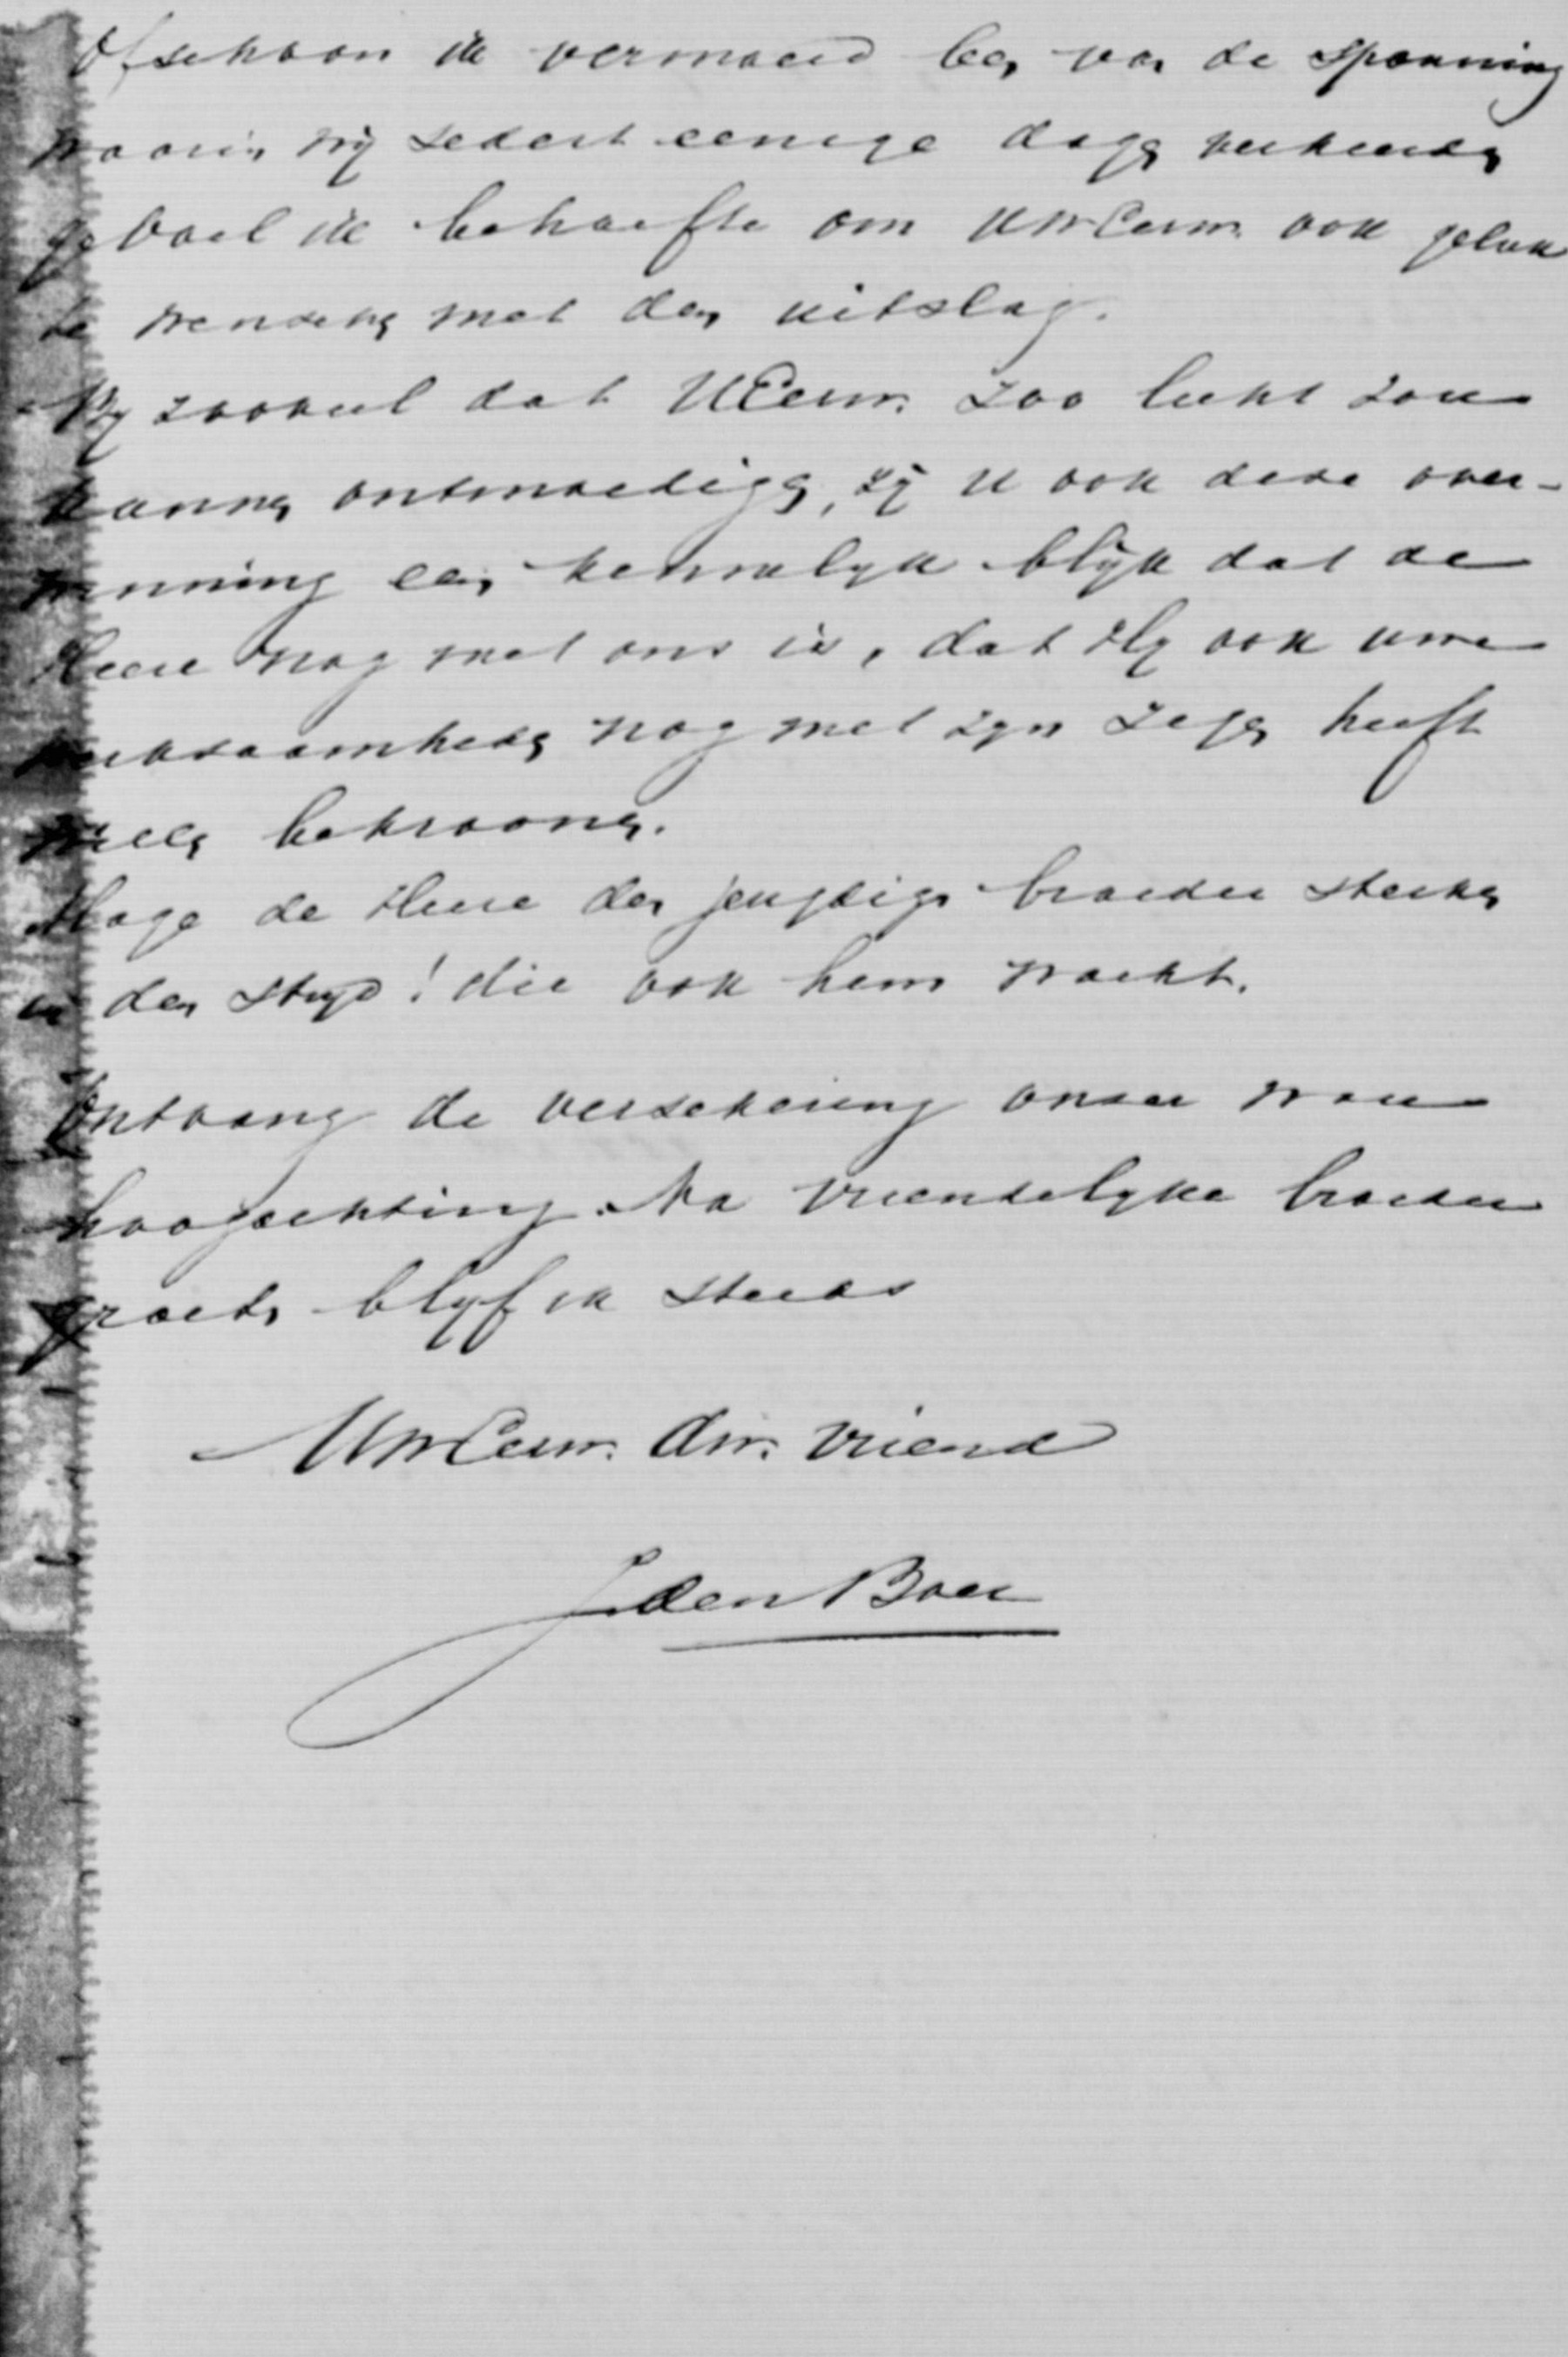 Ofschoon ik vermoeid ben van de spanning
waarin wij sedert eenige dagen verkeerden
gevoel ik behoefte om UwEerw. ook geluk
te wenschen met den uitslag.
By zooveel dat UEerw. zoo licht zou
kunnen ontmoedigen, zij U ook deze over-
winning een kennelyk blijk dat de
Heere nog met ons is, dat Hy ook uwe
werkzaamheden nog met zyn zegen heeft
willen bekroonen.
Moge de Heere den jeugdigen broeder sterken
in den stryd! die ook hem wacht.
Ontvang de verzekering onzer ware
hoogachting. Na vriendelyke broeder
groete blyf ik steeds
UwEerw. dw. vriend
J den Boer